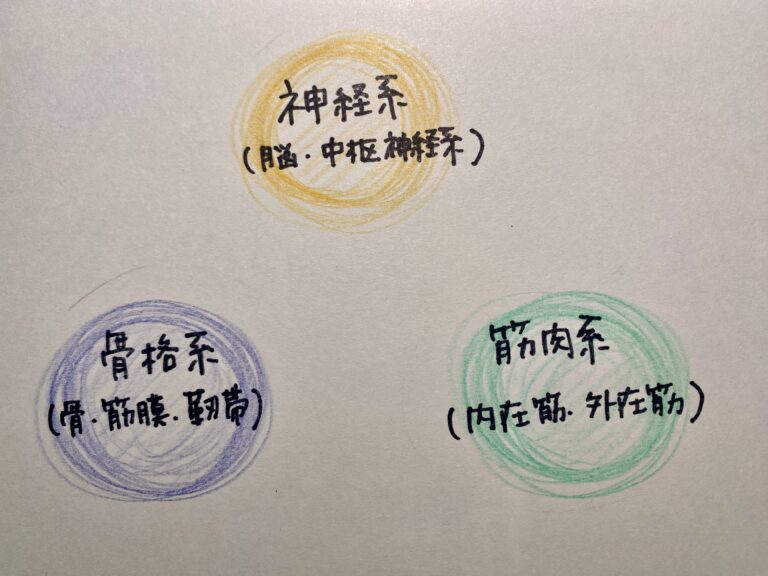 神経系
(脳・中枢神経系)
骨格系
(骨・筋膜・靭帯)
筋肉系
(内在筋・外在筋)